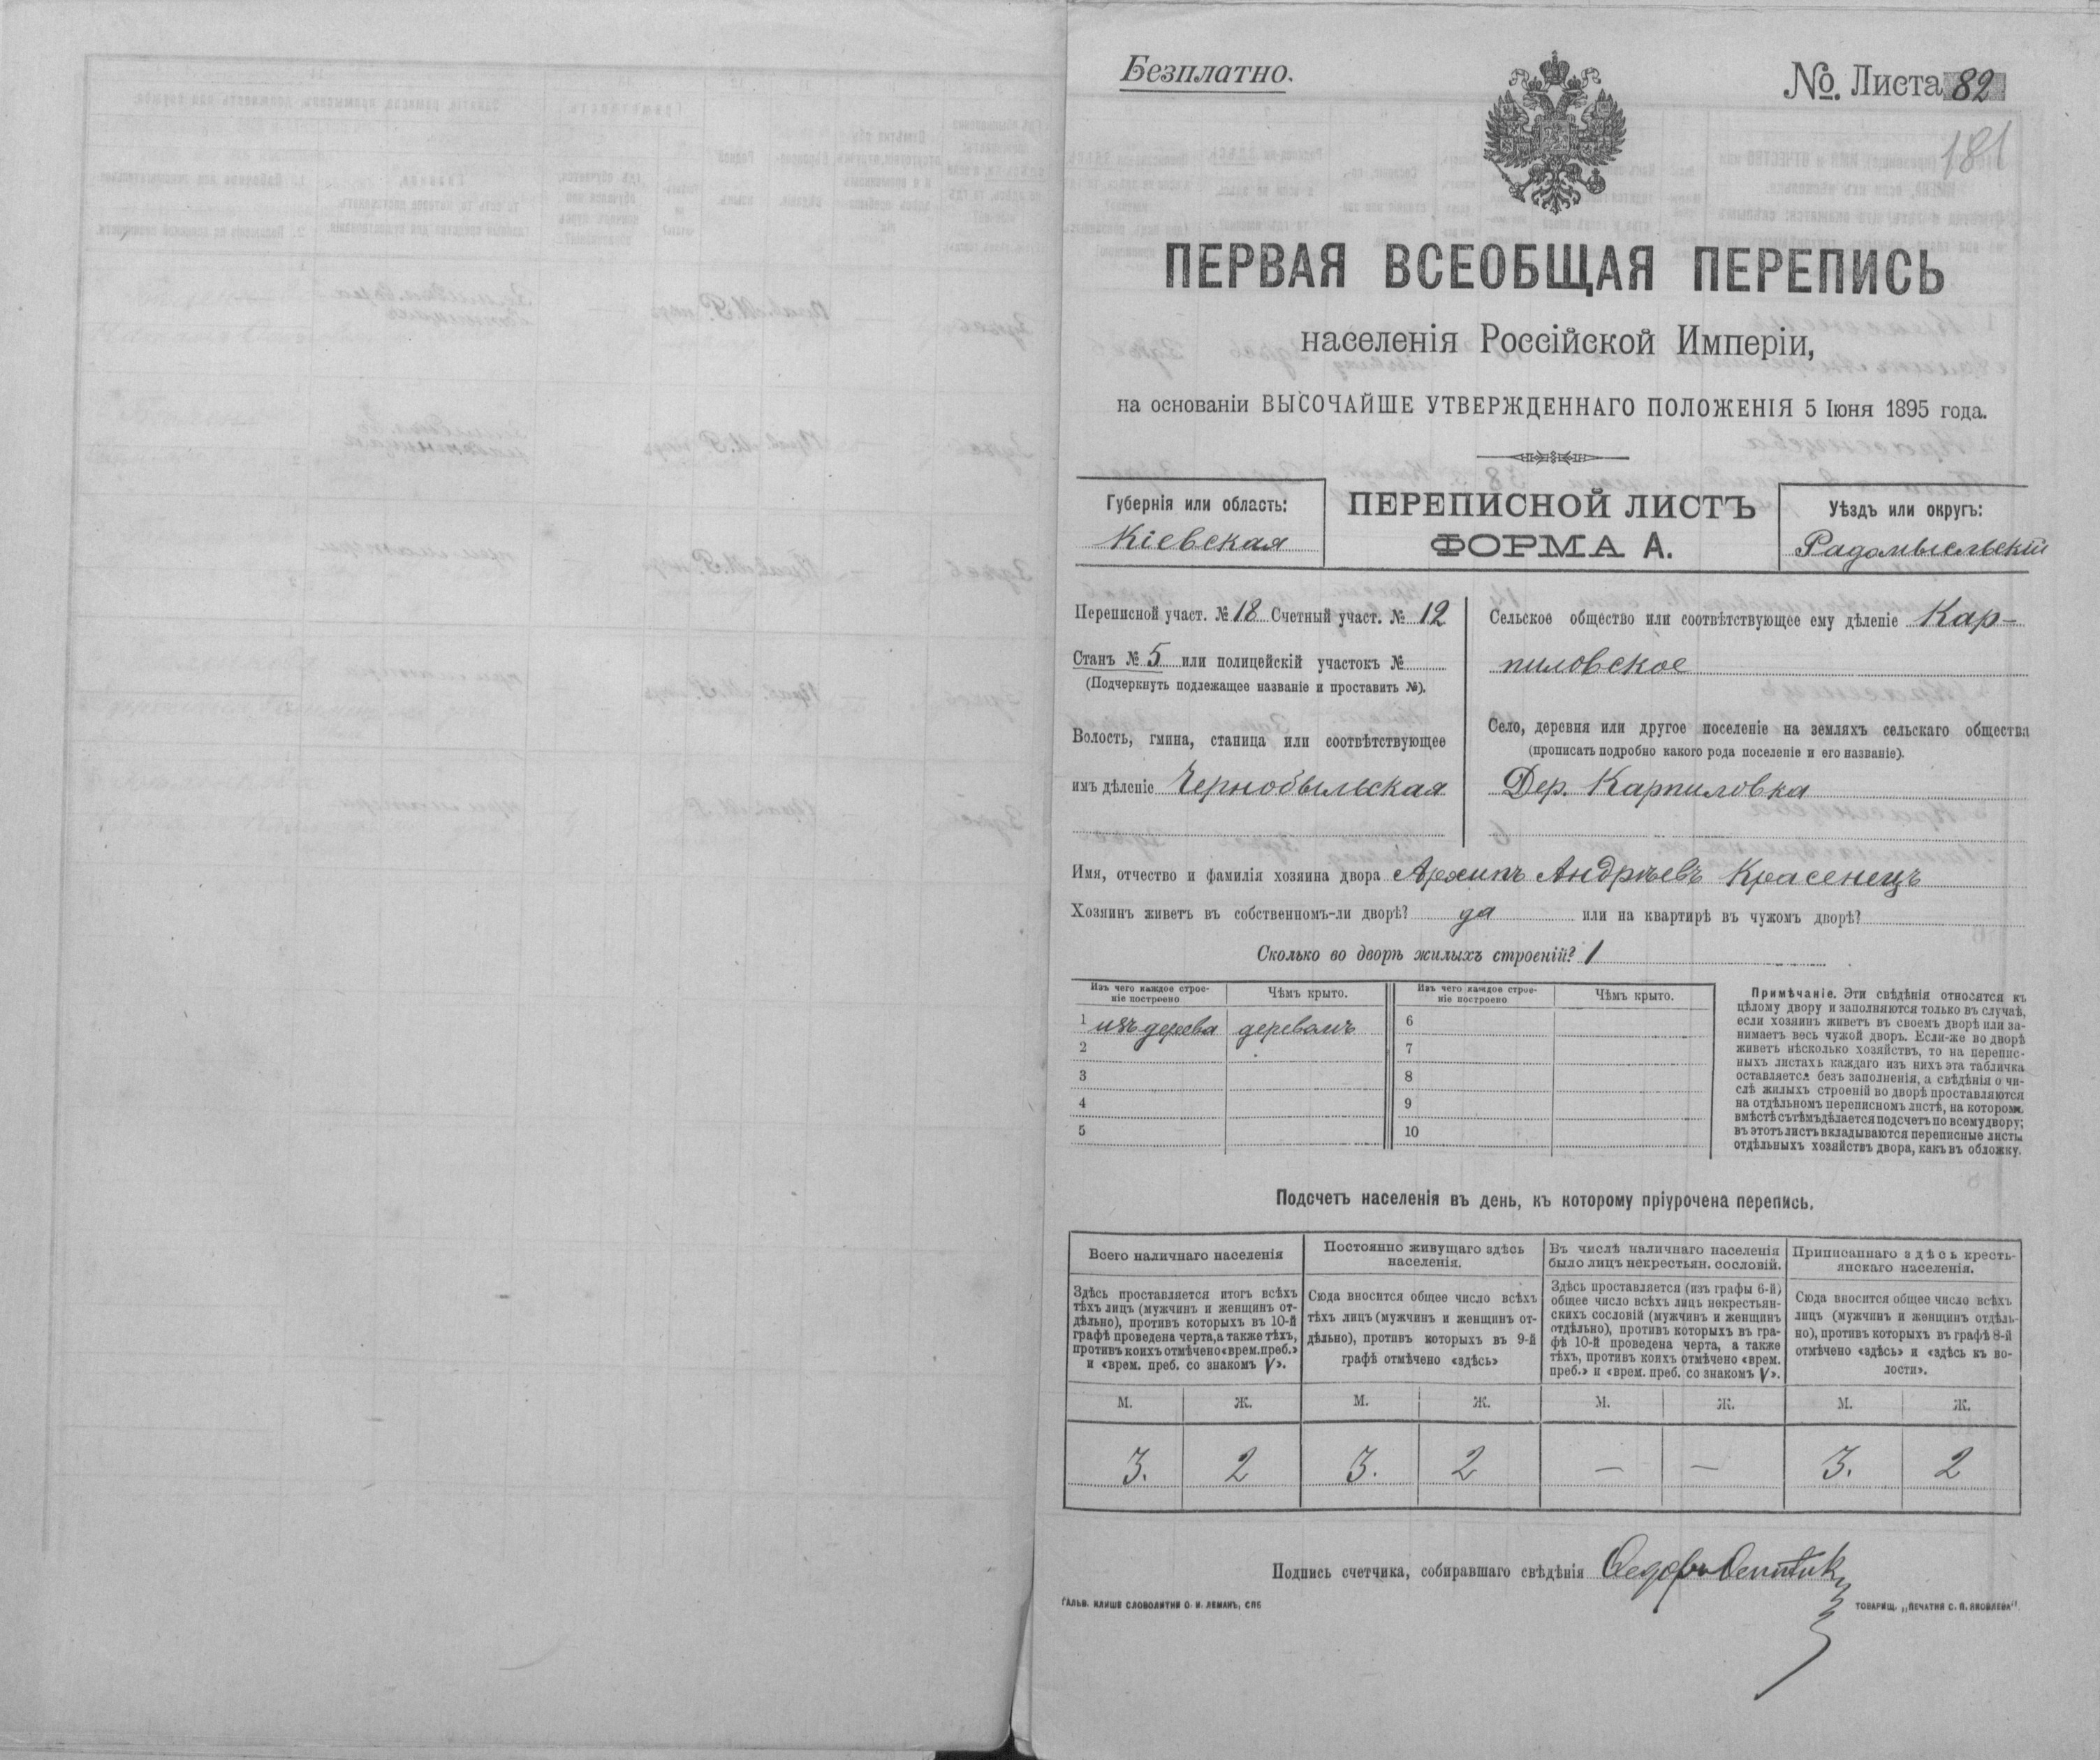 Безплатно.
№. Листа 82
181
ПЕРВАЯ ВСЕОБЩАЯ ПЕРЕПИСЬ
населенія Россійской Имперіи,
на основаніи ВЫСОЧАЙШЕ УТВЕРЖДЕННАГО ПОЛОЖЕНІЯ 5 Іюня 1895 года.
Губернія или область:
Кіевская
ПЕРЕПИСНОЙ ЛИСТЪ
ФОРМА А.
Уѣздъ или округъ:
Радомысльскій
Переписной участ. № 18 Счетный участ. № 12
Станъ № 5 или полицейскій участокъ №
(Подчеркнуть подлежащее названіе и проставить №).
Волость, гмина, станица или соотвѣтствующее
имъ дѣленіе Чернобыльская
Сельское общество или соотвѣтствующее ему дѣленіе Кар-
пиловское
Село, деревня или другое поселеніе на земляхъ сельскаго общества
(прописать подробно какого рода поселеніе и его названіе).
Дер. Карпиловка
Имя, отчество и фамилія хозяина двора Архипъ Андрѣевъ Красенецъ
Хозяинъ живетъ въ собственномъ-ли дворѣ? да или на квартирѣ въ чужомъ дворѣ?
Сколько во дворѣ жилыхъ строеній? 1
Изъ чего каждое строе-
ніе построено
Чѣмъ крыто.
Изъ чего каждое строе-
ніе построено
Чѣмъ крыто.
1 изъ дерева деревомъ 6
2 7
3 8
4 9
5 10
Примѣчаніе. Эти свѣдѣнія относятся къ
цѣлому двору и заполняются только въ случаѣ,
если хозяинъ живетъ въ своемъ дворѣ или за-
нимаетъ весь чужой дворъ. Если-же во дворѣ
живетъ нѣсколько хозяйствъ, то на перепис-
ныхъ листахъ каждаго изъ нихъ эта табличка
оставляется безъ заполненія, а свѣдѣнія о чи-
слѣ жилыхъ строеній во дворѣ проставляются
на отдѣльномъ переписномъ листѣ, на которомъ
вмѣстѣ съ тѣмъ дѣлается подсчетъ по всему двору;
въ этотъ листъ вкладываются переписные листы
отдѣльныхъ хозяйствъ двора, какъ въ обложку.
Подсчетъ населенія въ день, къ которому пріурочена перепись.
Всего наличнаго населенія
Здѣсь проставляется итогъ всѣхъ
тѣхъ лицъ (мужчинъ и женщинъ от-
дѣльно), противъ которыхъ въ 10-й
графѣ проведена черта, а также тѣхъ,
противъ коихъ отмѣчено «врем. преб.»
и «врем. преб. со знакомъ V».
Постоянно живущаго здѣсь
населенія.
Сюда вносится общее число всѣхъ
тѣхъ лицъ (мужчинъ и женщинъ от-
дѣльно), противъ которыхъ въ 9-й
графѣ отмѣчено «здѣсь»
Въ числѣ наличнаго населенія
было лицъ некрестьян. сословій.
Здѣсь проставляется (изъ графы 6-й)
общее число всѣхъ лицъ некрестьян-
скихъ сословій (мужчинъ и женщинъ
отдѣльно), противъ которыхъ въ гра-
фѣ 10-й проведена черта, а также
тѣхъ, противъ коихъ отмѣчено «врем.
преб.» и «врем. преб. со знакомъ V».
Приписаннаго здѣсь кресть-
янскаго населенія.
Сюда вносится общее число всѣхъ
лицъ (мужчинъ и женщинъ отдѣль-
но), противъ которыхъ въ графѣ 8-й
отмѣчено «здѣсь» и «здѣсь къ во-
лости».
М. Ж. М. Ж. М. Ж. М. Ж.
3. 2 3. 2 — — 3. 2
Подпись счетчика, собиравшаго свѣдѣнія
ГАЛЬВ. КЛИШЕ СЛОВОЛИТНИ О. И. ЛЕМАНЪ, СПБ
ТОВАРИЩ. „ПЕЧАТНЯ С. П. ЯКОВЛЕВА"